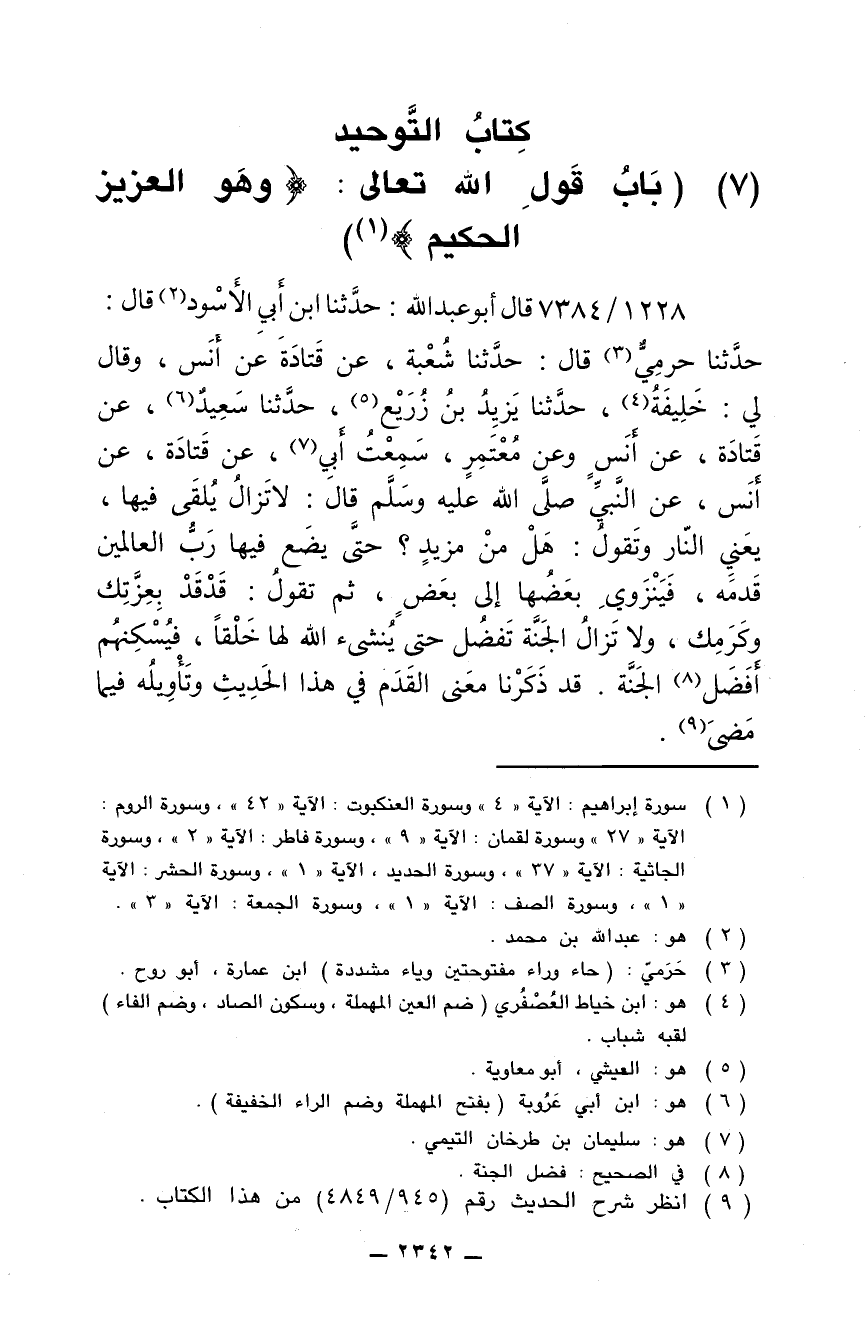 كِتابُ التَّوحيد
(٧) ( بَابُ قَولِ الله تعالى : ﴿ وهَو العزيز
الحكيم ﴾(١))
٧٣٨٤/١٢٢٨ قال أبو عبدالله : حدَّثنا ابن أَبي الأَسْود(٢) قال :
حدَّثنا حرمِيٌّ(٣) قال : حدَّثنا شُعْبة ، عن قَتادَةَ عن أَنَس ، وقال
لي : خَلِيفَةُ(٤) ، حدَّثنا يَزِيدُ بنُ زُرَيْع(٥) ، حدَّثنا سَعِيدٌ(٦) ، عن
قَتادَة ، عن أَنَسٍ وعن مُعْتَمِرٍ ، سَمِعْتُ أَبي(٧) ، عن قَتادَة ، عن
أَنَس ، عن النَّبيِّ صلَّى الله عليه وسَلَّم قالَ : لاتَزالُ يُلقَى فيها ،
يعَني النّار وتَقولُ : هَلْ منْ مزيدٍ ؟ حتَّى يضَع فيها رَبُّ العالمين
قدمَه ، فَيَنْزَوي بعَضُها إلى بعَضٍ ، ثم تقولُ : قَدْقَدْ بِعِزَّتِك
وكَرَمِك ، ولا تَزالُ الجَنَّة تَفضُل حتى يُنشىء الله لها خَلْقاً ، فيُسْكِنهُم
أَفَضَل(٨) الجَنَّة . قد ذَكَرْنا معَنى القَدَم في هذا الحَديثِ وتَأْويلُه فيما
مَضىَ(٩) .
( ١ ) سورة إبراهيم : الآية « ٤ » وسورة العنكبوت : الآية « ٤٢ » ، وسورة الروم :
الآية « ٢٧ » وسورة لقمان : الآية « ٩ » ، وسورة فاطر : الآية « ٢ » ، وسورة
الجاثية : الآية « ٣٧ » ، وسورة الحديد ، الآية « ١ » ، وسورة الحشر : الآية
« ١ » ، وسورة الصف : الآية « ١ » ، وسورة الجمعة : الآية « ٣ » .
( ٢ ) هو : عبدالله بن محمد .
( ٣ ) حَرَميّ : ( حاء وراء مفتوحتين وياء مشددة ) ابن عمارة ، أبو روح .
( ٤ ) هو : ابن خياط العُصْفُري ( ضم العين المهملة ، وسكون الصاد ، وضم الفاء )
لقبه شباب .
( ٥ ) هو : العيشي ، أبو معاوية .
( ٦ ) هو : ابن أبي عَرُوبة ( بفتح المهملة وضم الراء الخفيفة ) .
( ٧ ) هو : سليمان بن طرخان التيمي .
( ٨ ) في الصحيح : فضل الجنة .
( ٩ ) انظر شرح الحديث رقم (٤٨٤٩/٩٤٥) من هذا الكتاب .
— ٢٣٤٢ —